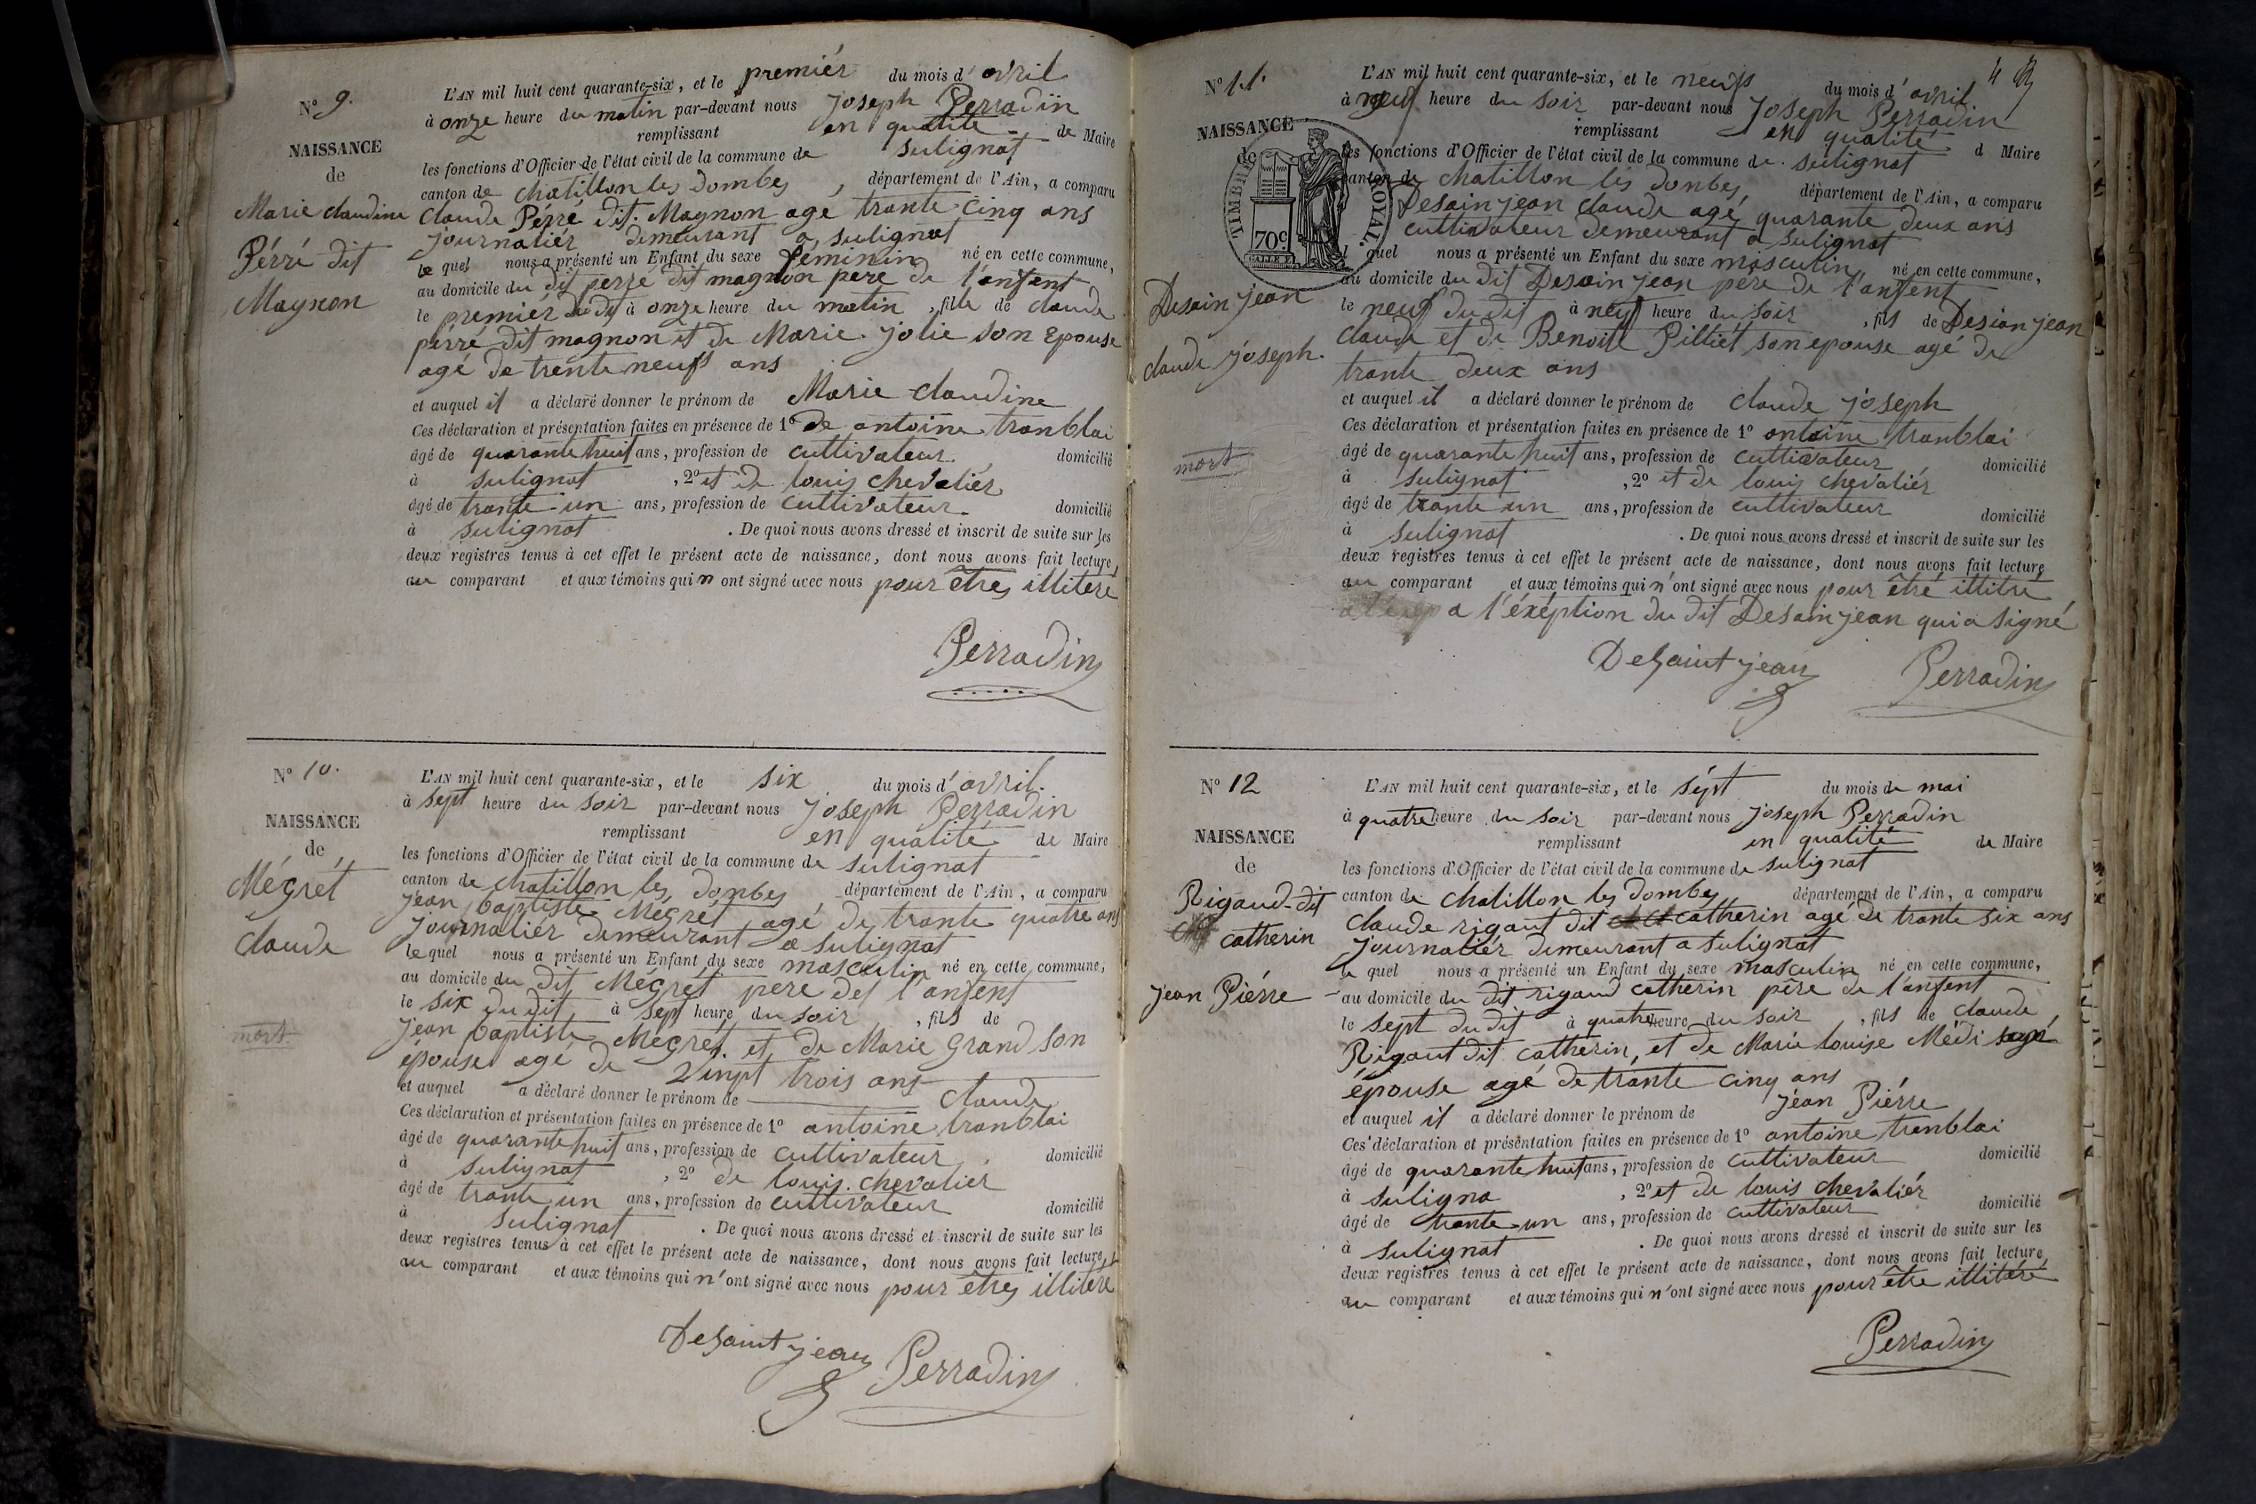 N° 9.
NAISSANCE
de
Marie claudine
Pérré dit
Magnon
L'AN mil huit cent quarante-six, et le premiér du mois d'avril
à onze heure du matin par-devant nous Joseph Perradin
remplissant en qualité de Maire
les fonctions d'Officier de l'état civil de la commune de sulignat
canton de chatillon les Dombes, département de l'Ain, a comparu
claude Pérré dit Magnon agé trante cinq ans
journaliér demeurant a sulignat
le quel nous a présenté un Enfant du sexe féminin né en cette commune,
au domicile du dit perré dit magnon pere de l'anfent
le premiér du dit à onze heure du matin, fille de claude
pérré dit magnon et de Marie jolie son Epouse
agé de trente neufs ans
et auquel il a déclaré donner le prénom de Marie claudine
Ces déclaration et présentation faites en présence de 1° de antoine tranblai
âgé de quarante huit ans, profession de cultivateur domicilié
à sulignat, 2° et de louis chevaliér
âgé de trante un ans, profession de cultivateur domicilié
à sulignat. De quoi nous avons dressé et inscrit de suite sur les
deux registres tenus à cet effet le présent acte de naissance, dont nous avons fait lecture,
au comparant et aux témoins qui n'ont signé avec nous pour êtres illiteré
Perradin
N° 10.
NAISSANCE
de
Mégrét
claude
mort
L'AN mil huit cent quarante-six, et le six du mois d'avril.
à sept heure du soir par-devant nous Joseph Perradin
remplissant en qualité de Maire
les fonctions d'Officier de l'état civil de la commune de sulignat
canton de chatillon les Donbes, département de l'Ain, a comparu
jean baptiste Mégrét agé de trante quatre ans
journaliér demeurant a sulignat
le quel nous a présenté un Enfant du sexe masculin né en cette commune,
au domicile du dit Mégrét pere det l'anfent
le six du dit à sept heure du soir, fils de
jean baptiste Mégrét et de Marie Grand son
épouse agé de vinpt trois ans
et auquel a déclaré donner le prénom de claude
Ces déclaration et présentation faites en présence de 1° antoine tranblai
âgé de quarante huit ans, profession de cultivateur domicilié
à sulignat, 2° de louis chevaliér
âgé de trante un ans, profession de cultivateur domicilié
à sulignat. De quoi nous avons dressé et inscrit de suite sur les
deux registres tenus à cet effet le présent acte de naissance, dont nous avons fait lecture,
au comparant et aux témoins qui n'ont signé avec nous pour êtres illiteré
DeSaint jean Perradin
4
N° 11.
NAISSANCE
de
TIMBRE ROYAL.
70c
Desain jean
claude joseph.
mort
L'AN mil huit cent quarante-six, et le neufs du mois d'avril.
à neuf heure du soir par-devant nous Joseph Perradin
remplissant en qualité d Maire
les fonctions d'Officier de l'état civil de la commune de sulignat
canton de chatillon les donbes département de l'Ain, a comparu
Desain jean claude agé quarante deux ans
cultivateur demeurant a sulignat
l quel nous a présenté un Enfant du sexe masculin né en cette commune,
au domicile du dit Desain jean père de l'anfent
le neuf du dit à neuf heure du soir, fils de Desian jean
claude et de Benoite Pilliét son epouse agé de
trante deux ans
et auquel il a déclaré donner le prénom de claude joseph
Ces déclaration et présentation faites en présence de 1° antoine tranblai
âgé de quarante huit ans, profession de cultivateur domicilié
à sulignat, 2° et de louis chevaliér
âgé de trante un ans, profession de cultivateur domicilié
à sulignat. De quoi nous avons dressé et inscrit de suite sur les
deux registres tenus à cet effet le présent acte de naissance, dont nous avons fait lecture
au comparant et aux témoins qui n'ont signé avec nous pour êtré illitré
a l'éxéption du dit Desain jean qui a signé
DeSaint jean Perradin
N° 12
NAISSANCE
de
Rigaud dit
catherin
jean Piérre
L'AN mil huit cent quarante-six, et le sépt du mois de mai
à quatre heure du soir par-devant nous Joseph Perradin
remplissant en qualité de Maire
les fonctions d'Officier de l'état civil de la commune de sulignat
canton de chatillon les Dombes département de l'Ain, a comparu
claude rigaut dit catherin agé de trante six ans
journaliér demeurant a sulignat
le quel nous a présenté un Enfant du sexe masculin né en cette commune,
au domicile du dit rigaud catherin père de l'anfent
le sept du dit à quatre heure du soir, fils de claude
Rigaut dit catherin, et de Marie louise Médi
épouse agé de trante cinq ans
et auquel il a déclaré donner le prénom de jean Piérre
Ces déclaration et présentation faites en présence de 1° antoine trenblai
âgé de quarante huit ans, profession de cultivateur domicilié
à suligna, 2° et de louis chevaliér
âgé de trante un ans, profession de cultivateur domicilié
à sulignat. De quoi nous avons dressé et inscrit de suite sur les
deux registres tenus à cet effet le présent acte de naissance, dont nous avons fait lecture,
au comparant et aux témoins qui n'ont signé avec nous pour être illitéré
Perradin